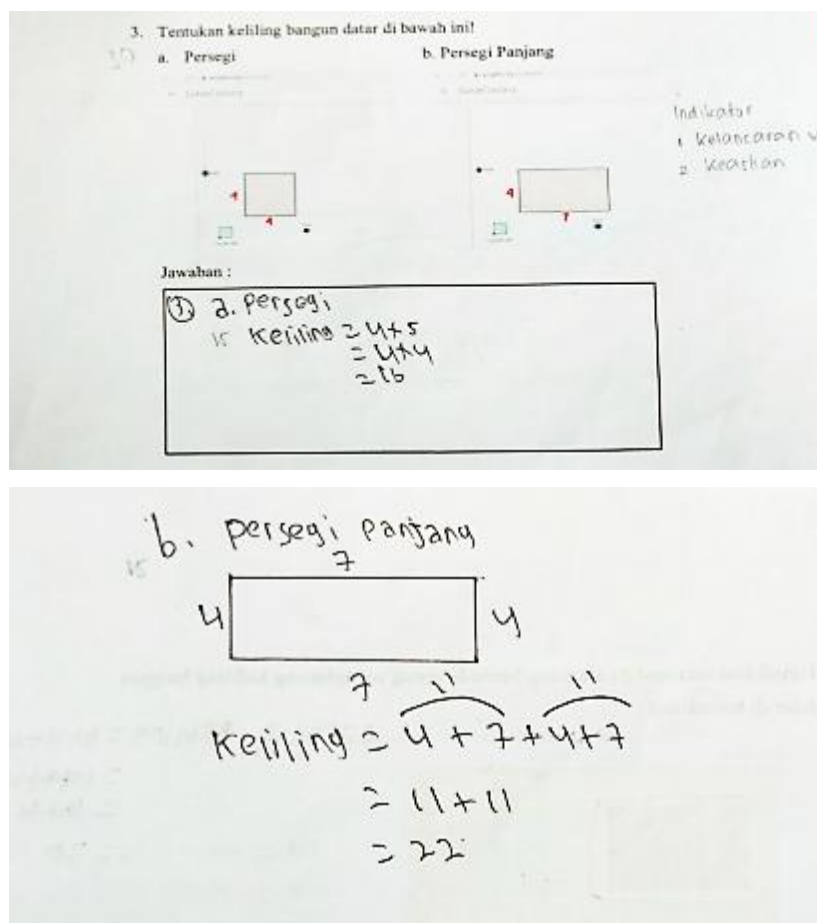 3. Tentukan keliling bangun datar di bawah ini!
a. Persegi
b. Persegi Panjang
Indikator
1 Kelancaran ✓
2 Keaslian
4
4
4
7
Jawaban :
③ a. Persegi
15 Keliling = 4 × s
= 4 × 4
= 16
b. Persegi Panjang
15
7
4
4
7
11 11
Keliling = 4 + 7 + 4 + 7
= 11 + 11
= 22